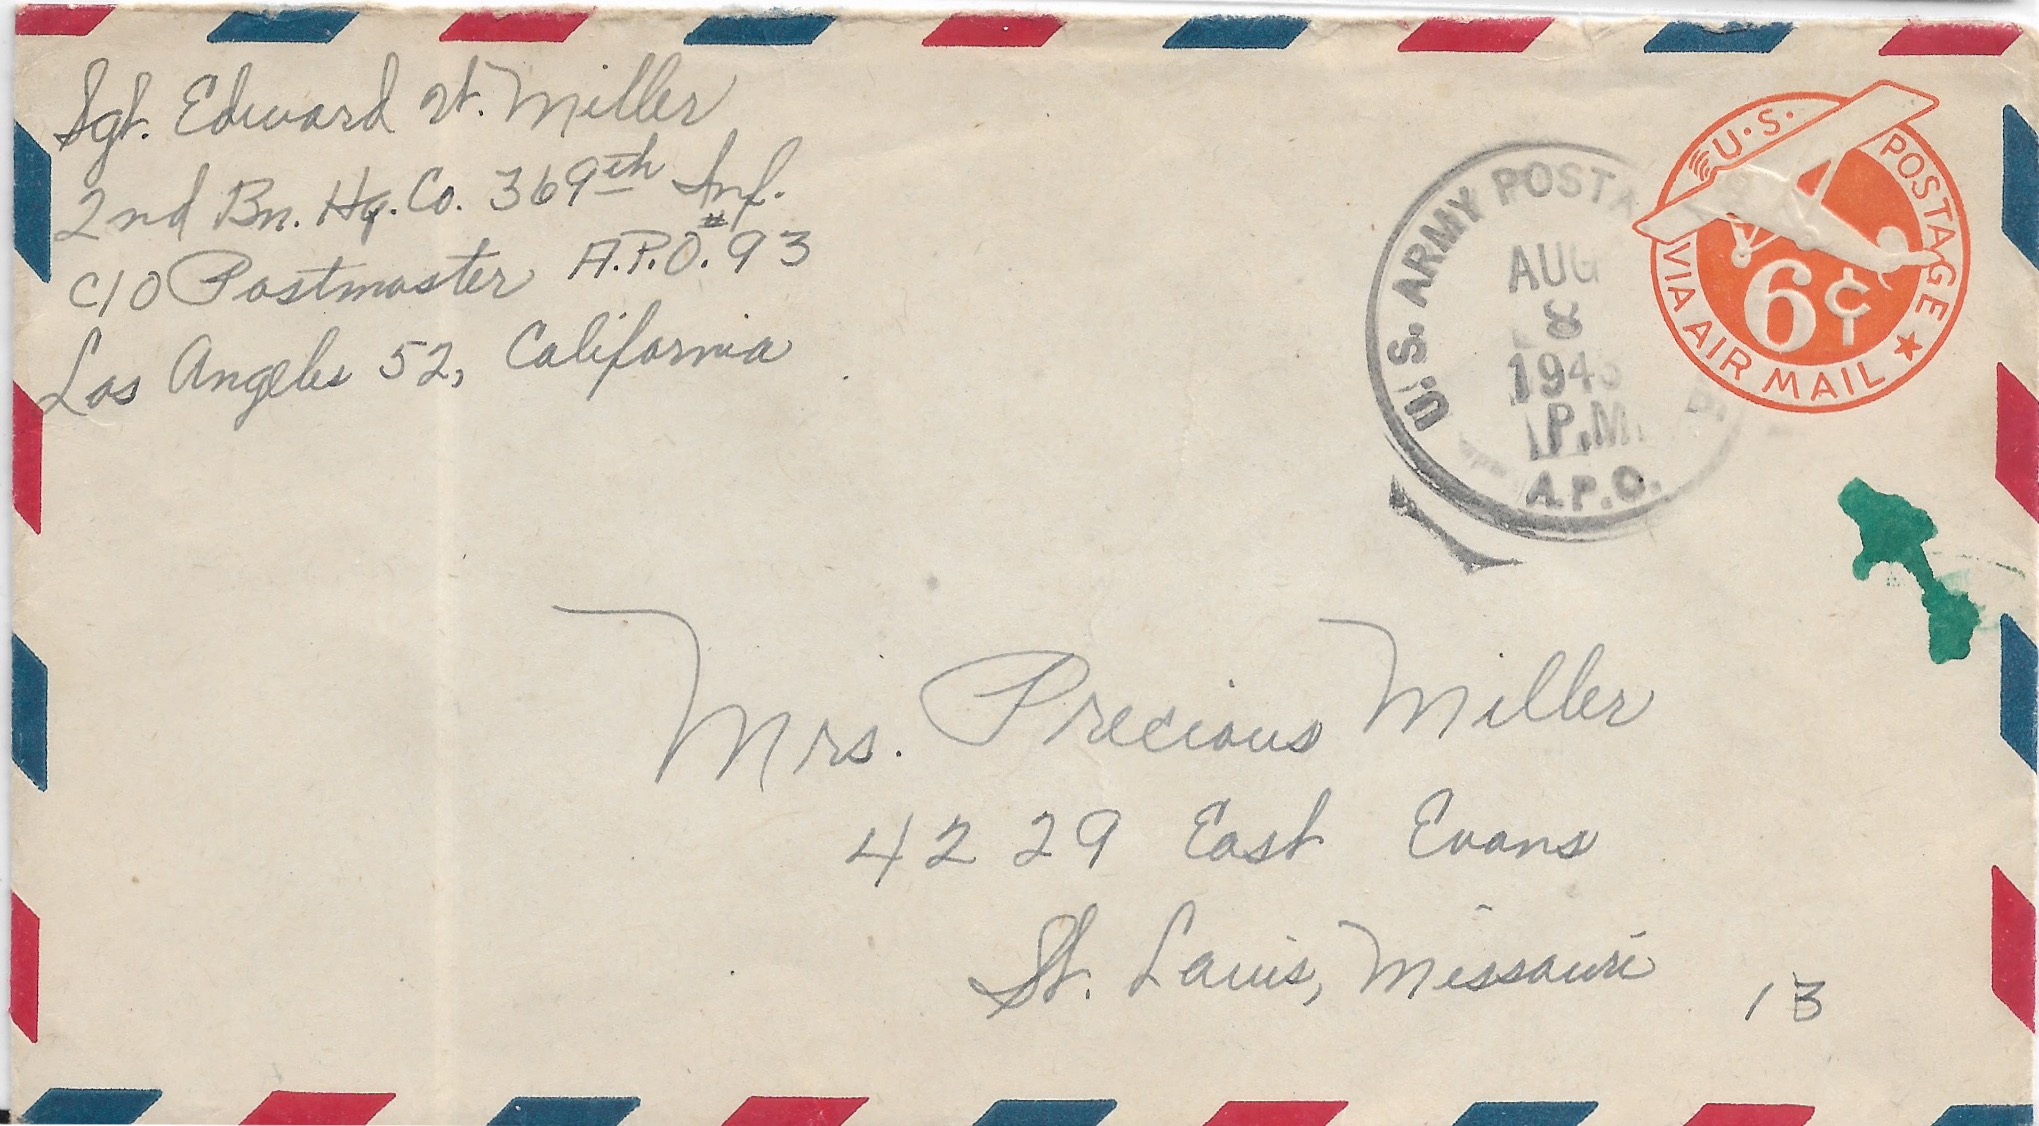 Sgt. Edward W. Miller
2nd Bn. Hq. Co. 369th Inf.
C/O Postmaster A.P.O. #93
Los Angeles 52, California
U.S. ARMY POSTA
AUG
8
194
P.M.
A.P.O.
U.S. POSTAGE
6¢
VIA AIR MAIL
Mrs. Precious Miller
4229 East Evans
St. Louis, Missouri 13